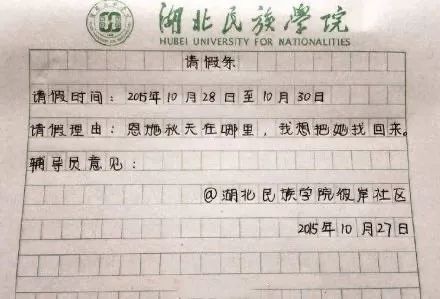 湖北民族学院
HUBEI UNIVERSITY FOR NATIONALITIES
请假条
请假时间：2015年10月28日至10月30日
请假理由：恩施秋天在哪里，我想把她找回来。
辅导员意见：
@湖北民族学院彼岸社区
2015年10月27日